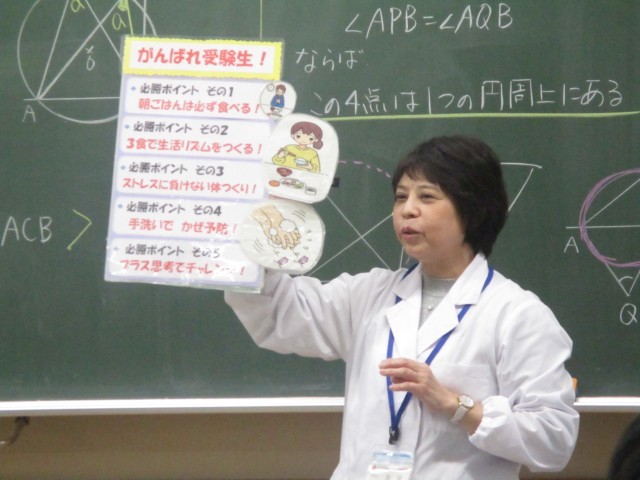 がんばれ受験生！
必勝ポイント その1
朝ごはんは必ず食べる！
必勝ポイント その2
3食で生活リズムをつくる！
必勝ポイント その3
ストレスに負けない体つくり！
必勝ポイント その4
手洗いで かぜ予防！
必勝ポイント その5
プラス思考でチャレンジ！
∠APB=∠AQB
ならば
この4点は1つの円周上にある
A
ACB >
A
Q